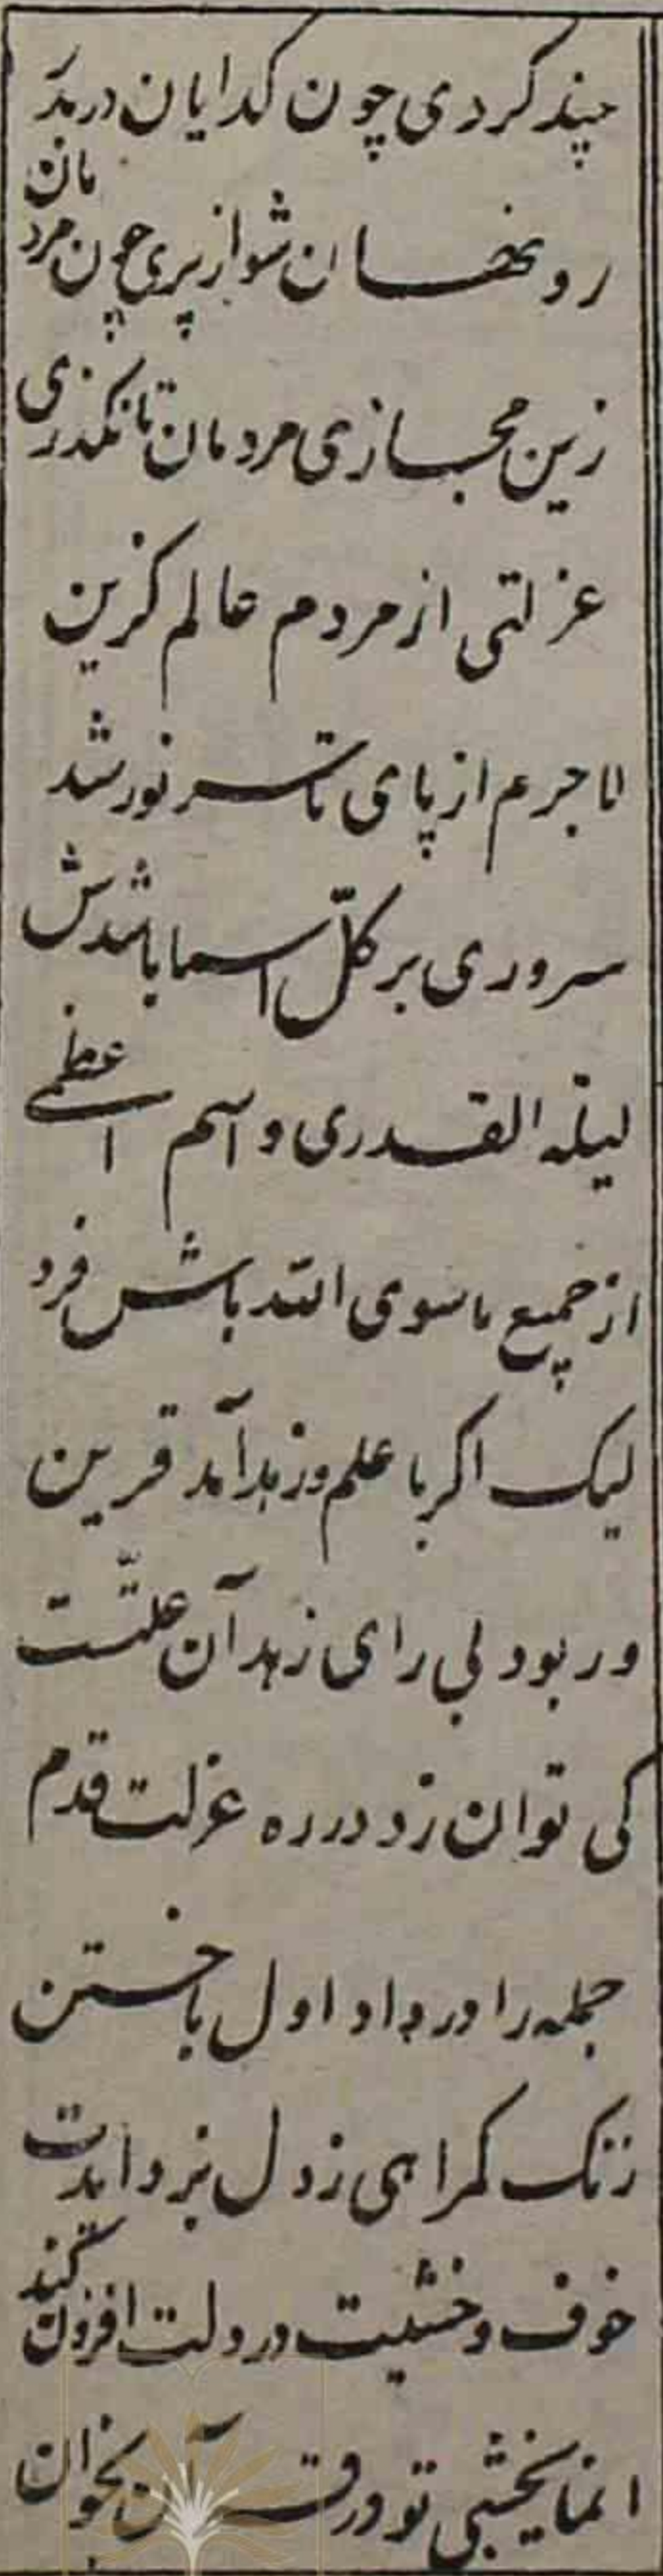 چند کردی چون کدایان در بدر
رو نهان شو از پری چون مردمان
زین مجازی مردمان تا نکذری
عزلتی از مردم عالم کزین
لاجرم از پای تا سر نور شد
سروری بر کلّ اسما باشدش
لیلة القدری و اسم اعظمی
از جمیع ماسوی الله باش فرد
لیک اکر با علم و زهد آمد قرین
ور بود بی رای زهد آن علّتست
کی توان زد در ره عزلت قدم
جمله را در داو اول باختن
زنک کمراهی ز دل بزدایدت
خوف و خشیت در دلت افزون کند
انما یخشی تو در قرآن بخوان